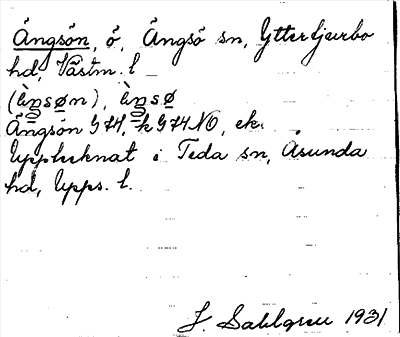 Ängsön, ö, Ängsö sn, Yttertjurbo
hd, Västm. l
(ὲŋsøn), ὲŋsø
Ängsön GH, k GHNO, ek.
Upptecknat i Teda sn, Åsunda
hd, Upps. l.
J. Sahlgren 1931